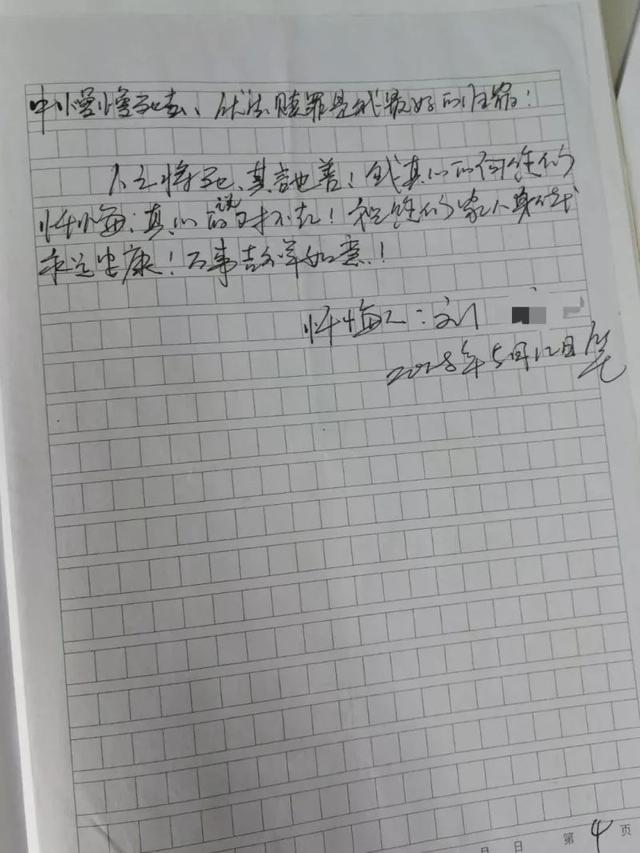 中慢慢死去、伏法赎罪是我最好的归宿!
人之将死、其言也善!我真心的向维的
忏悔;真心的说对不起!祝维的家人身体
永远安康!万事吉祥如意!
忏悔人:刘
2023年5月12日
月 日 第4页